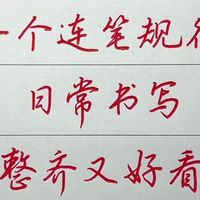 一个连笔规律
日常书写
整齐又好看